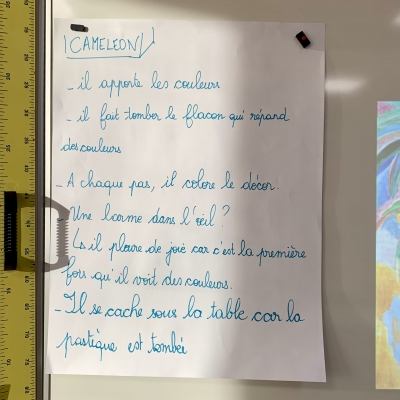 CAMELEON
- il apporte les couleurs
- il fait tomber le flacon qui répand
des couleurs
- A chaque pas, il colore le décor.
- Une larme dans l'œil ?
↳ il pleure de joie car c'est la première
fois qu'il voit des couleurs.
- Il se cache sous la table car la
pastèque est tombée